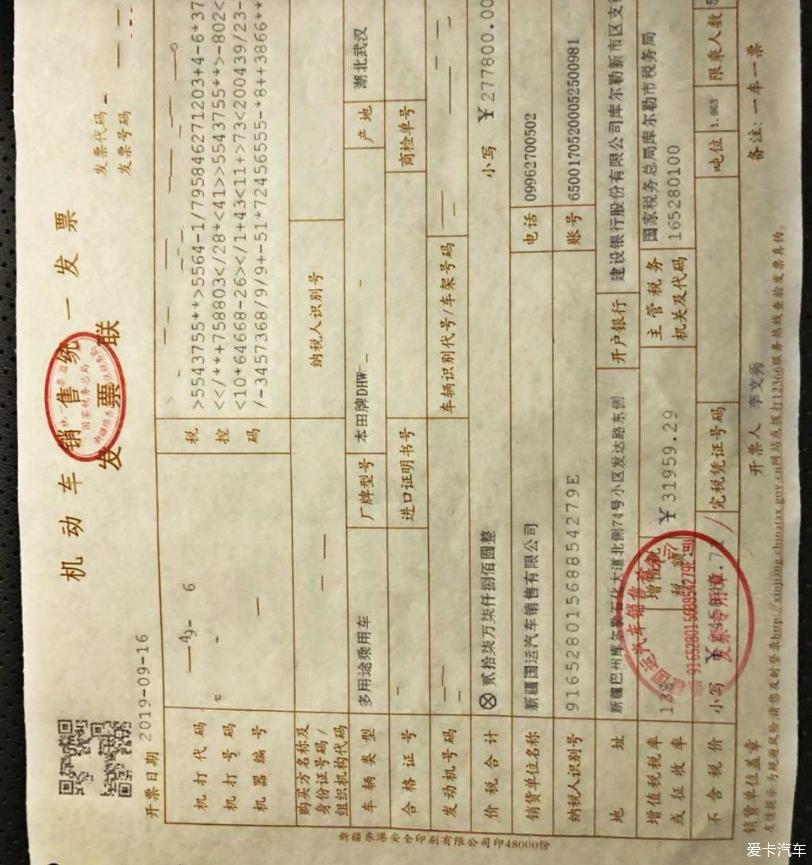 机动车销售统一发票
发票联
发票代码
发票号码
开票日期 2019-09-16
机打代码
机打号码
机器编号
税控码
>5543755**>5564-1/795846271203+4-6*37
<</**+758803</28*<41>>5543755**>-802<
<10*64668-26></1+43<11+>73<200439/23-
/-3457368/9/9+-51*72456555-*8++3866**
购买方名称及身份证号码/组织机构代码
纳税人识别号
车辆类型 多用途乘用车 厂牌型号 本田牌DHW 产地 湖北武汉
合格证号 进口证明书号 商检单号
发动机号码 车辆识别代号/车架号码
价税合计 ⊗贰拾柒万柒仟捌佰圆整 小写 ￥277800.00
销货单位名称 新疆国运汽车销售有限公司 电话 09962700502
纳税人识别号 91652801568854279E 账号 65001705200052500981
地址 新疆巴州库尔勒石化大道北侧74号小区发达路东侧 开户银行 建设银行股份有限公司库尔勒新市区支
增值税税率或征收率 13% 增值税税额 ￥31959.29 主管税务机关及代码 国家税务总局库尔勒市税务局 165280100
不含税价 小写 ￥ 完税凭证号码 吨位 限乘人数
销货单位盖章 开票人 李文秀 备注：一车一票
友情提示：为规避风险，请您及时登录http://xinjiang.chinatax.gov.cn网站或拨打12366服务热线查验发票真伪。
国家税务总局
91652801568854279E
发票专用章
爱卡汽车